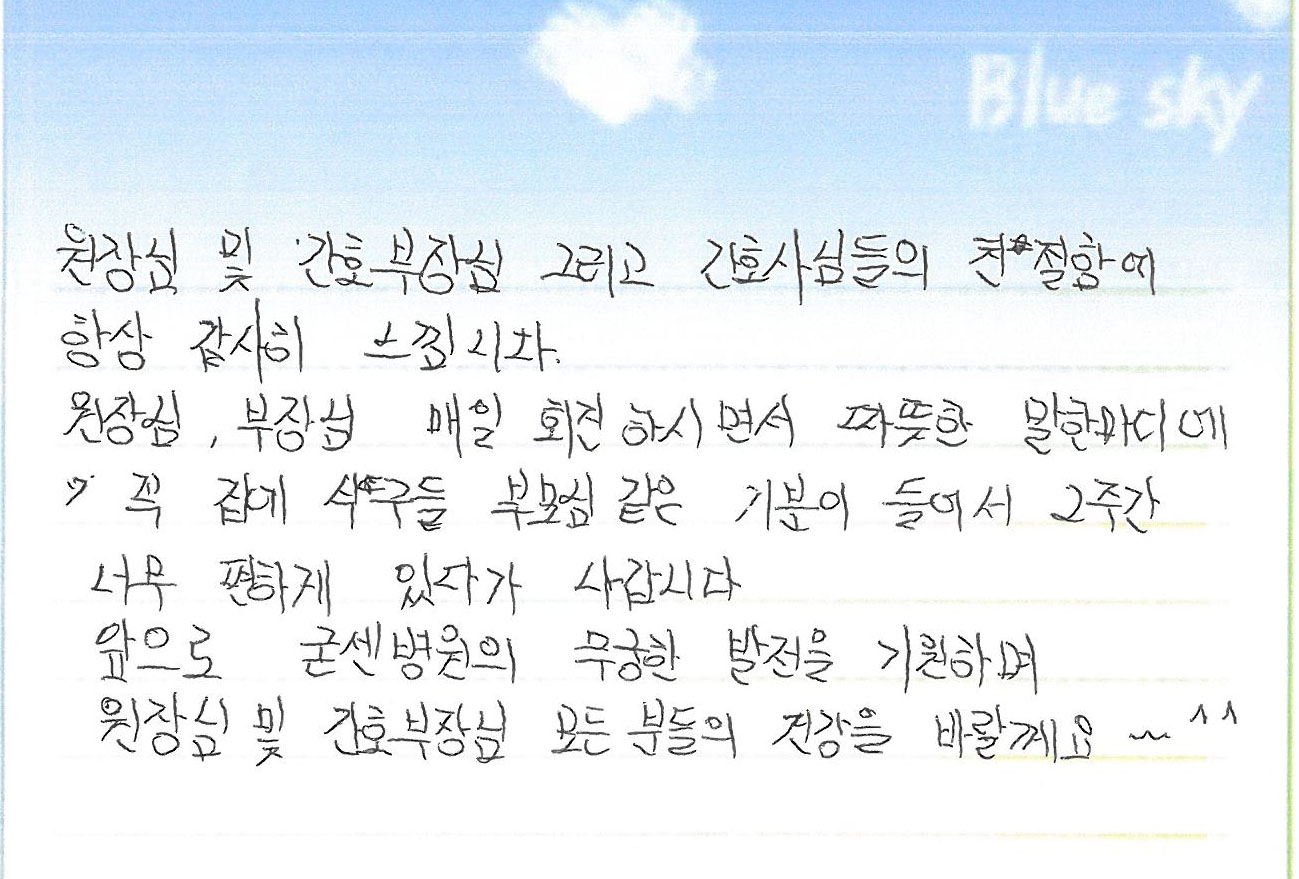 Blue sky
원장님 및 간호부장님 그리고 간호사님들의 친절함에
항상 감사히 느낍니다.
원장님, 부장님 매일 회진하시면서 따뜻한 말한마디에
꼭 집에 식구들 부모님 같은 기분이 들어서 2주간
너무 편하게 있다가 나갑니다
앞으로 굳센병원의 무궁한 발전을 기원하며
원장님 및 간호부장님 모든분들의 건강을 바랄께요 ~ ^^